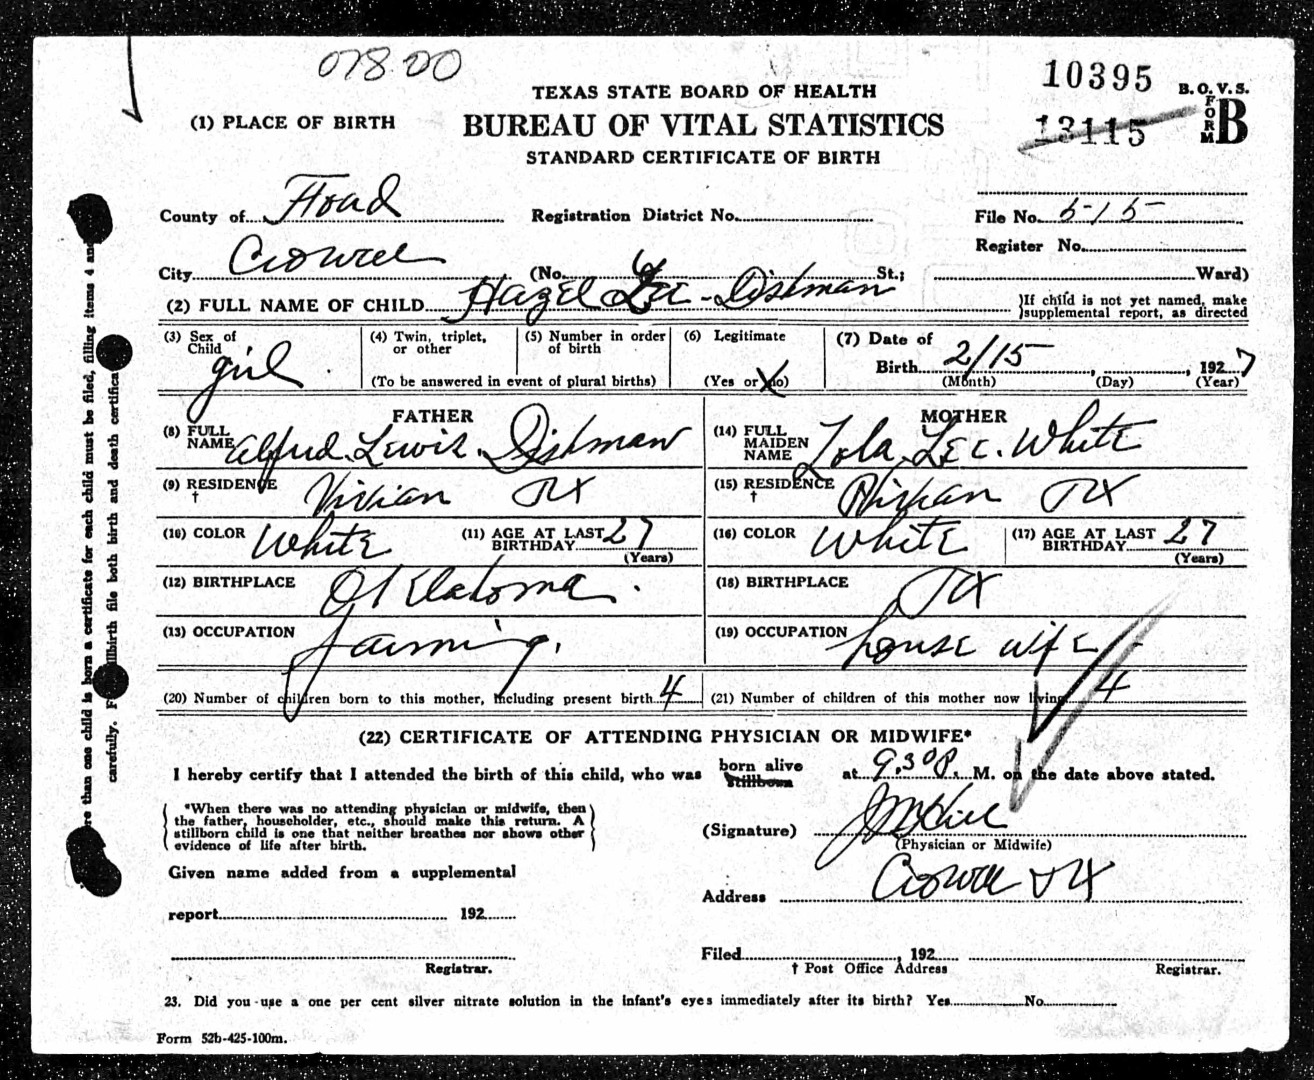 078.00
10395
B. O. V. S.
FORM B
13115
TEXAS STATE BOARD OF HEALTH
(1) PLACE OF BIRTH
BUREAU OF VITAL STATISTICS
STANDARD CERTIFICATE OF BIRTH
County of Foard Registration District No. File No. 515
Register No.
City Crowell (No. St.; Ward)
(2) FULL NAME OF CHILD Hazel Lee Dishman }If child is not yet named, make
}supplemental report, as directed
(3) Sex of Child girl (4) Twin, triplet, or other (5) Number in order of birth (6) Legitimate (7) Date of
(To be answered in event of plural births) (Yes or no) Birth 2/15, 1927
(Month) (Day) (Year)
FATHER MOTHER
(8) FULL NAME Alfred Lewis Dishman (14) FULL MAIDEN NAME Lola Lee White
(9) RESIDENCE † Vivian TX (15) RESIDENCE † Vivian TX
(10) COLOR White (11) AGE AT LAST BIRTHDAY 27 (Years) (16) COLOR White (17) AGE AT LAST BIRTHDAY 27 (Years)
(12) BIRTHPLACE Oklahoma. (18) BIRTHPLACE TX
(13) OCCUPATION farming. (19) OCCUPATION house wife
(20) Number of children born to this mother, including present birth 4 (21) Number of children of this mother now living 4
(22) CERTIFICATE OF ATTENDING PHYSICIAN OR MIDWIFE*
I hereby certify that I attended the birth of this child, who was born alive stillborn at 9:30 P. M. on the date above stated.
*When there was no attending physician or midwife, then
the father, householder, etc., should make this return. A
stillborn child is one that neither breathes nor shows other
evidence of life after birth.
(Signature) J M Hill
(Physician or Midwife)
Given name added from a supplemental
Address Crowell TX
report 192
Filed , 192
Registrar. † Post Office Address Registrar.
23. Did you use a one per cent silver nitrate solution in the infant's eyes immediately after its birth? Yes No
Form 52b-425-100m.
re than one child is born a certificate for each child must be filed, filling items 4 and
carefully. F llbirth file both birth and death certifica